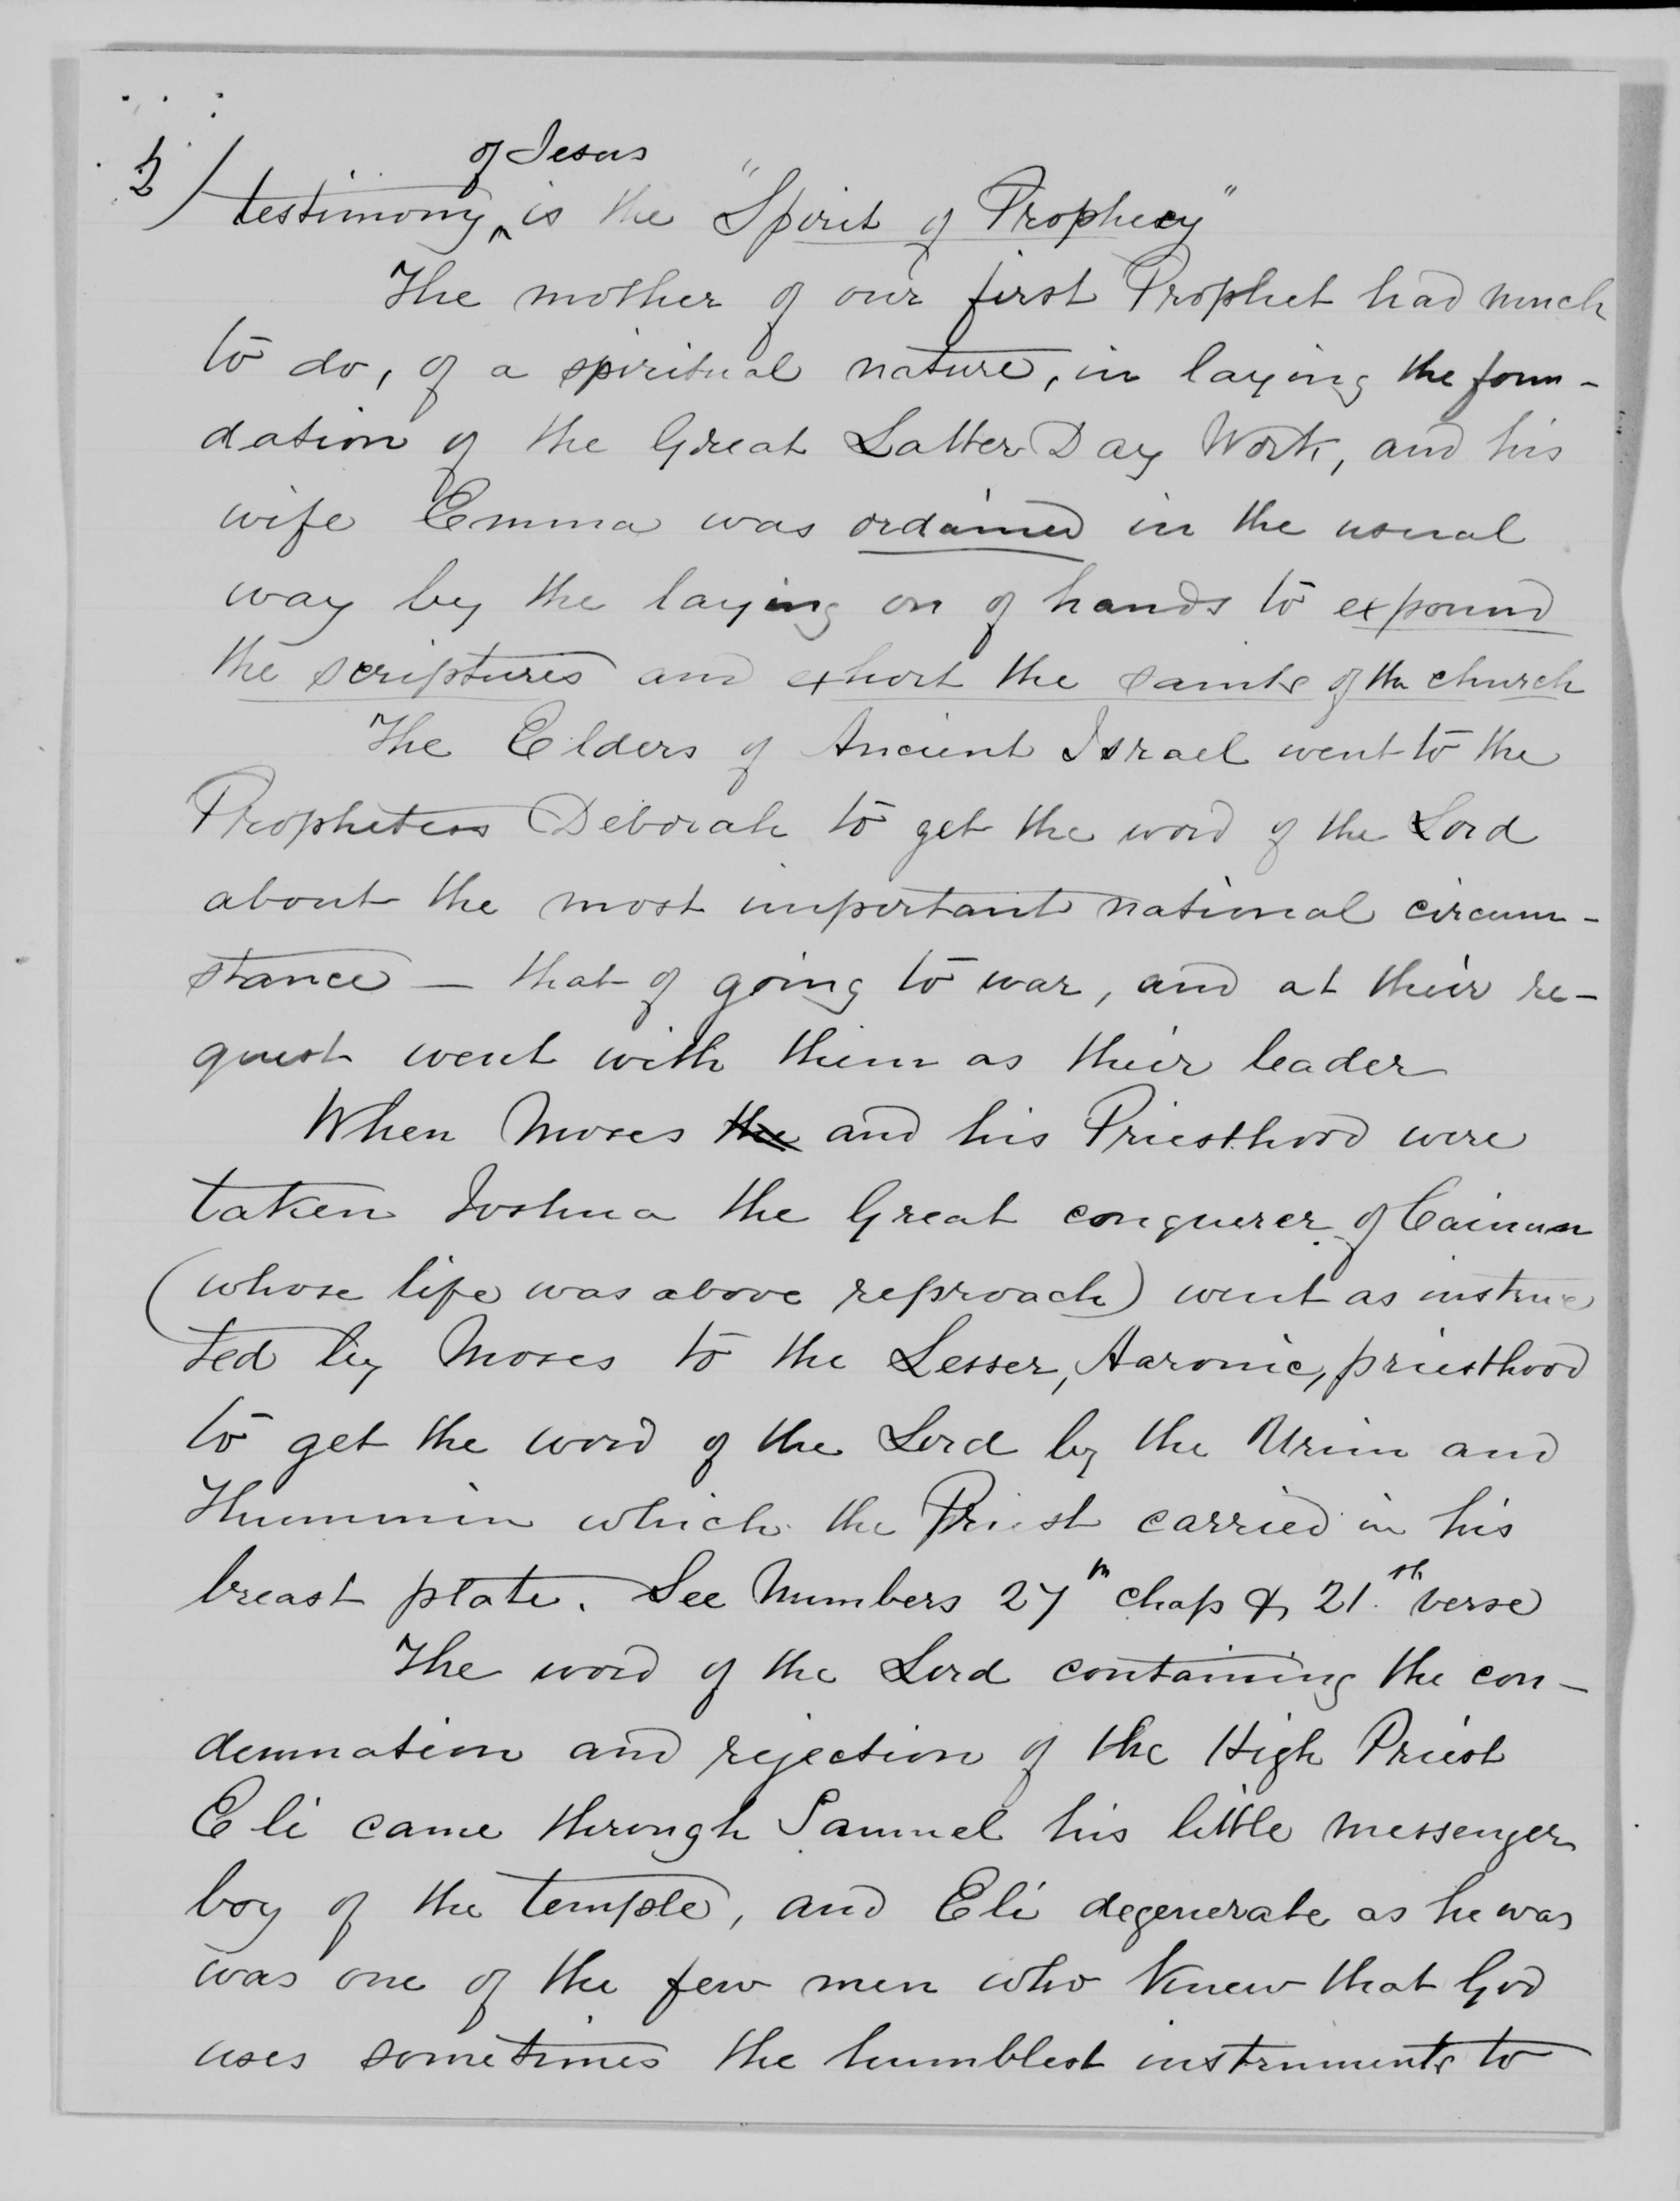 2/
of Jesus
testimony ^ is the "Spirit of Prophecy"
The mother of our first Prophet had much
to do, of a spiritual nature, in laying the foun-
dation of the Great Latter Day Work, and his
wife Emma was ordained in the usual
way by the laying on of hands to expound
the scriptures and exhort the saints of the church
The Elders of Ancient Israel went to the
Prophetess Deborah to get the word of the Lord
about the most important national circum-
stance — that of going to war, and at their re-
quest went with them as their leader
When Moses the and his Priesthood were
taken Joshua the Great conquerer of Cainan
(whose life was above reproach) went as instruc
ted by Moses to the Lesser, Aaronic, priesthood
to get the word of the Lord by the Urim and
Thummim which the Priest carried in his
breast plate. See Numbers 27th chap & 21.st verse
The word of the Lord containing the con-
demnation and rejection of the High Priest
Eli came through Samuel his little messenger
boy of the temple, and Eli degenerate as he was
was one of the few men who knew that God
uses sometimes the humblest instruments to